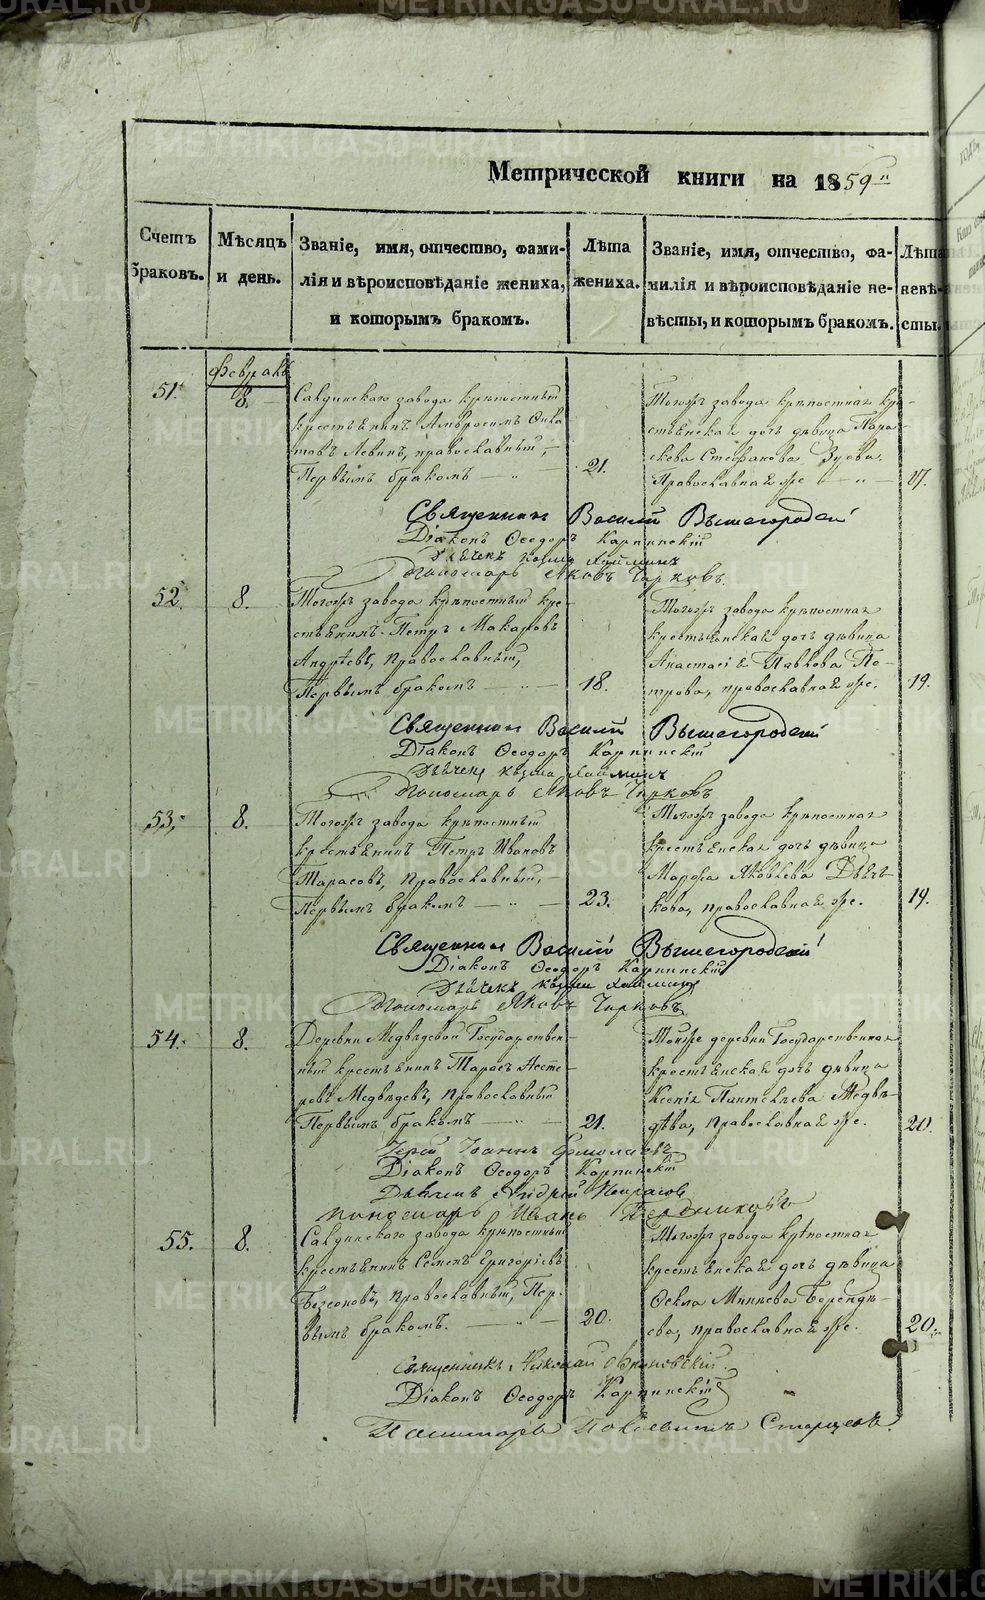 Метрической книги на 1859й
Счетъ браковъ.
Мѣсяцъ и день.
Званіе, имя, отчество, фами-
лія и вѣроисповѣданіе жениха,
и которымъ бракомъ.
Лѣта жениха.
Званіе, имя, отчество, фа-
милія и вѣроисповѣданіе не-
вѣсты, и которымъ бракомъ.
Лѣта невѣ-
сты.
Февраль
51.
8.
Салдинскаго завода крѣпостный
крестьянинъ Амвросимъ
Левинъ, православный,
Первымъ бракомъ — „
21.
Тогожъ завода крѣпостная кре-
стьянская дочь дѣвица Пара-
скева Стефанова Зуева,
Православная же — „ —
17.
Священникъ Василій Вышегородскій
Діаконъ Ѳеодоръ Карпинскій
Дьячекъ Козма
Пономарь Яковъ Чирковъ.
52.
8.
Тогожъ завода крѣпостный кре-
стьянинъ Петръ Макаровъ
Андрѣевъ, православный,
Первымъ бракомъ — „ —
18.
Тогожъ завода крѣпостная
крестьянская дочь дѣвица
Анастасія Павлова Пе-
трова, православная же.
19.
Священникъ Василій Вышегородскій
Діаконъ Ѳеодоръ Карпинскій
Дьячекъ Козма
Пономарь Яковъ Чирковъ
53.
8.
Тогожъ завода крѣпостный
крестьянинъ Петръ Ивановъ
Тарасовъ, православный,
Первымъ бракомъ — „ —
23.
Тогожъ завода крѣпостная
крестьянская дочь дѣвица
Марѳа Яковлева Дьяч-
кова, православная же.
19.
Священникъ Василій Вышегородскій
Діаконъ Ѳеодоръ Карпинскій
Дьячекъ Козма
Пономарь Яковъ Чирковъ
54.
8.
Деревни Медвѣдевой Государствен-
ный крестьянинъ Тарасъ Несте-
ровъ Медвѣдевъ, православный
Первымъ бракомъ — „ —
21.
Тойже деревни Государственная
крестьянская дочь дѣвица
Ксенія Пантелѣева Медвѣ-
дева, православная же.
20.
Іерей Іоаннъ
Діаконъ Ѳеодоръ Карпинскій
Дьячекъ Андрей Некрасовъ
Пономарь Иванъ
55.
8.
Салдинскаго завода крѣпостный
крестьянинъ Семенъ Григорьевъ
Безсоновъ, православный, Пер-
вымъ бракомъ. — „ —
20.
Тогожъ завода крѣпостная
крестьянская дочь дѣвица
Ѳекла Минѣева Берендѣ-
ева, православная же.
20.
Священникъ Николай
Діаконъ Ѳеодоръ Карпинскій
Пономарь Старцевъ.
METRIKI.GASO-URAL.RU